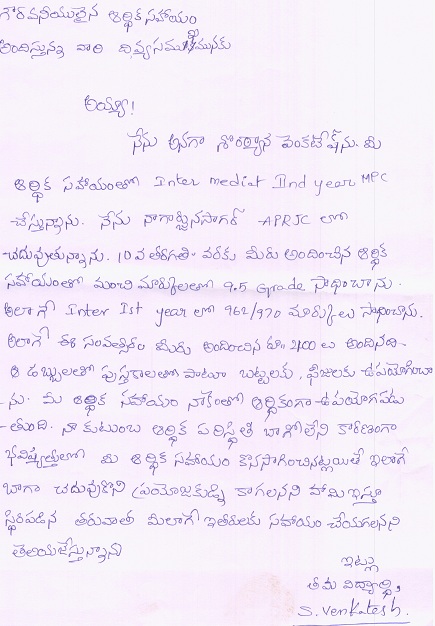 గౌరవనీయులైన ఆర్థిక సహాయం
అందిస్తున్న వారి దివ్యసముఖమునకు
అయ్యా!
నేను అనగా శొంఠ్యాన వెంకటేష్‌ను. మీ
ఆర్థిక సహాయంతో Inter mediat IInd year MPC
చేస్తున్నాను. నేను నాగార్జునసాగర్ APRJC లో
చదువుతున్నాను. 10వ తరగతి వరకు మీరు అందించిన ఆర్థిక
సహాయంతో మంచి మార్కులతో 9.5 Grade సాధించాను.
అలాగే Inter Ist year లో 962/970 మార్కులు సాధించాను.
అలాగే ఈ సంవత్సరం మీరు అందించిన రూ॥ 2100 లు అందినది.
ఆ డబ్బులతో పుస్తకాలతో పాటూ బట్టలకు, ఫీజులకు ఉపయోగించా
ను. మీ ఆర్థిక సహాయం నాకెంతో ఆర్థికంగా ఉపయోగపడు
తుంది. నా కుటుంబ ఆర్థిక పరిస్థితి బాగోలేని కారణంగా
భవిష్యత్తులో మీ ఆర్థిక సహాయం కొనసాగించినట్లయితే ఇలాగే
బాగా చదువుకొని ప్రయోజకుడ్ని కాగలనని హామి ఇస్తూ
స్థిరపడిన తరువాత మీలాగే ఇతరులకు సహాయం చేయగలనని
తెలియజేస్తున్నాను
ఇట్లు
తమ విద్యార్థి,
S. Venkatesh.